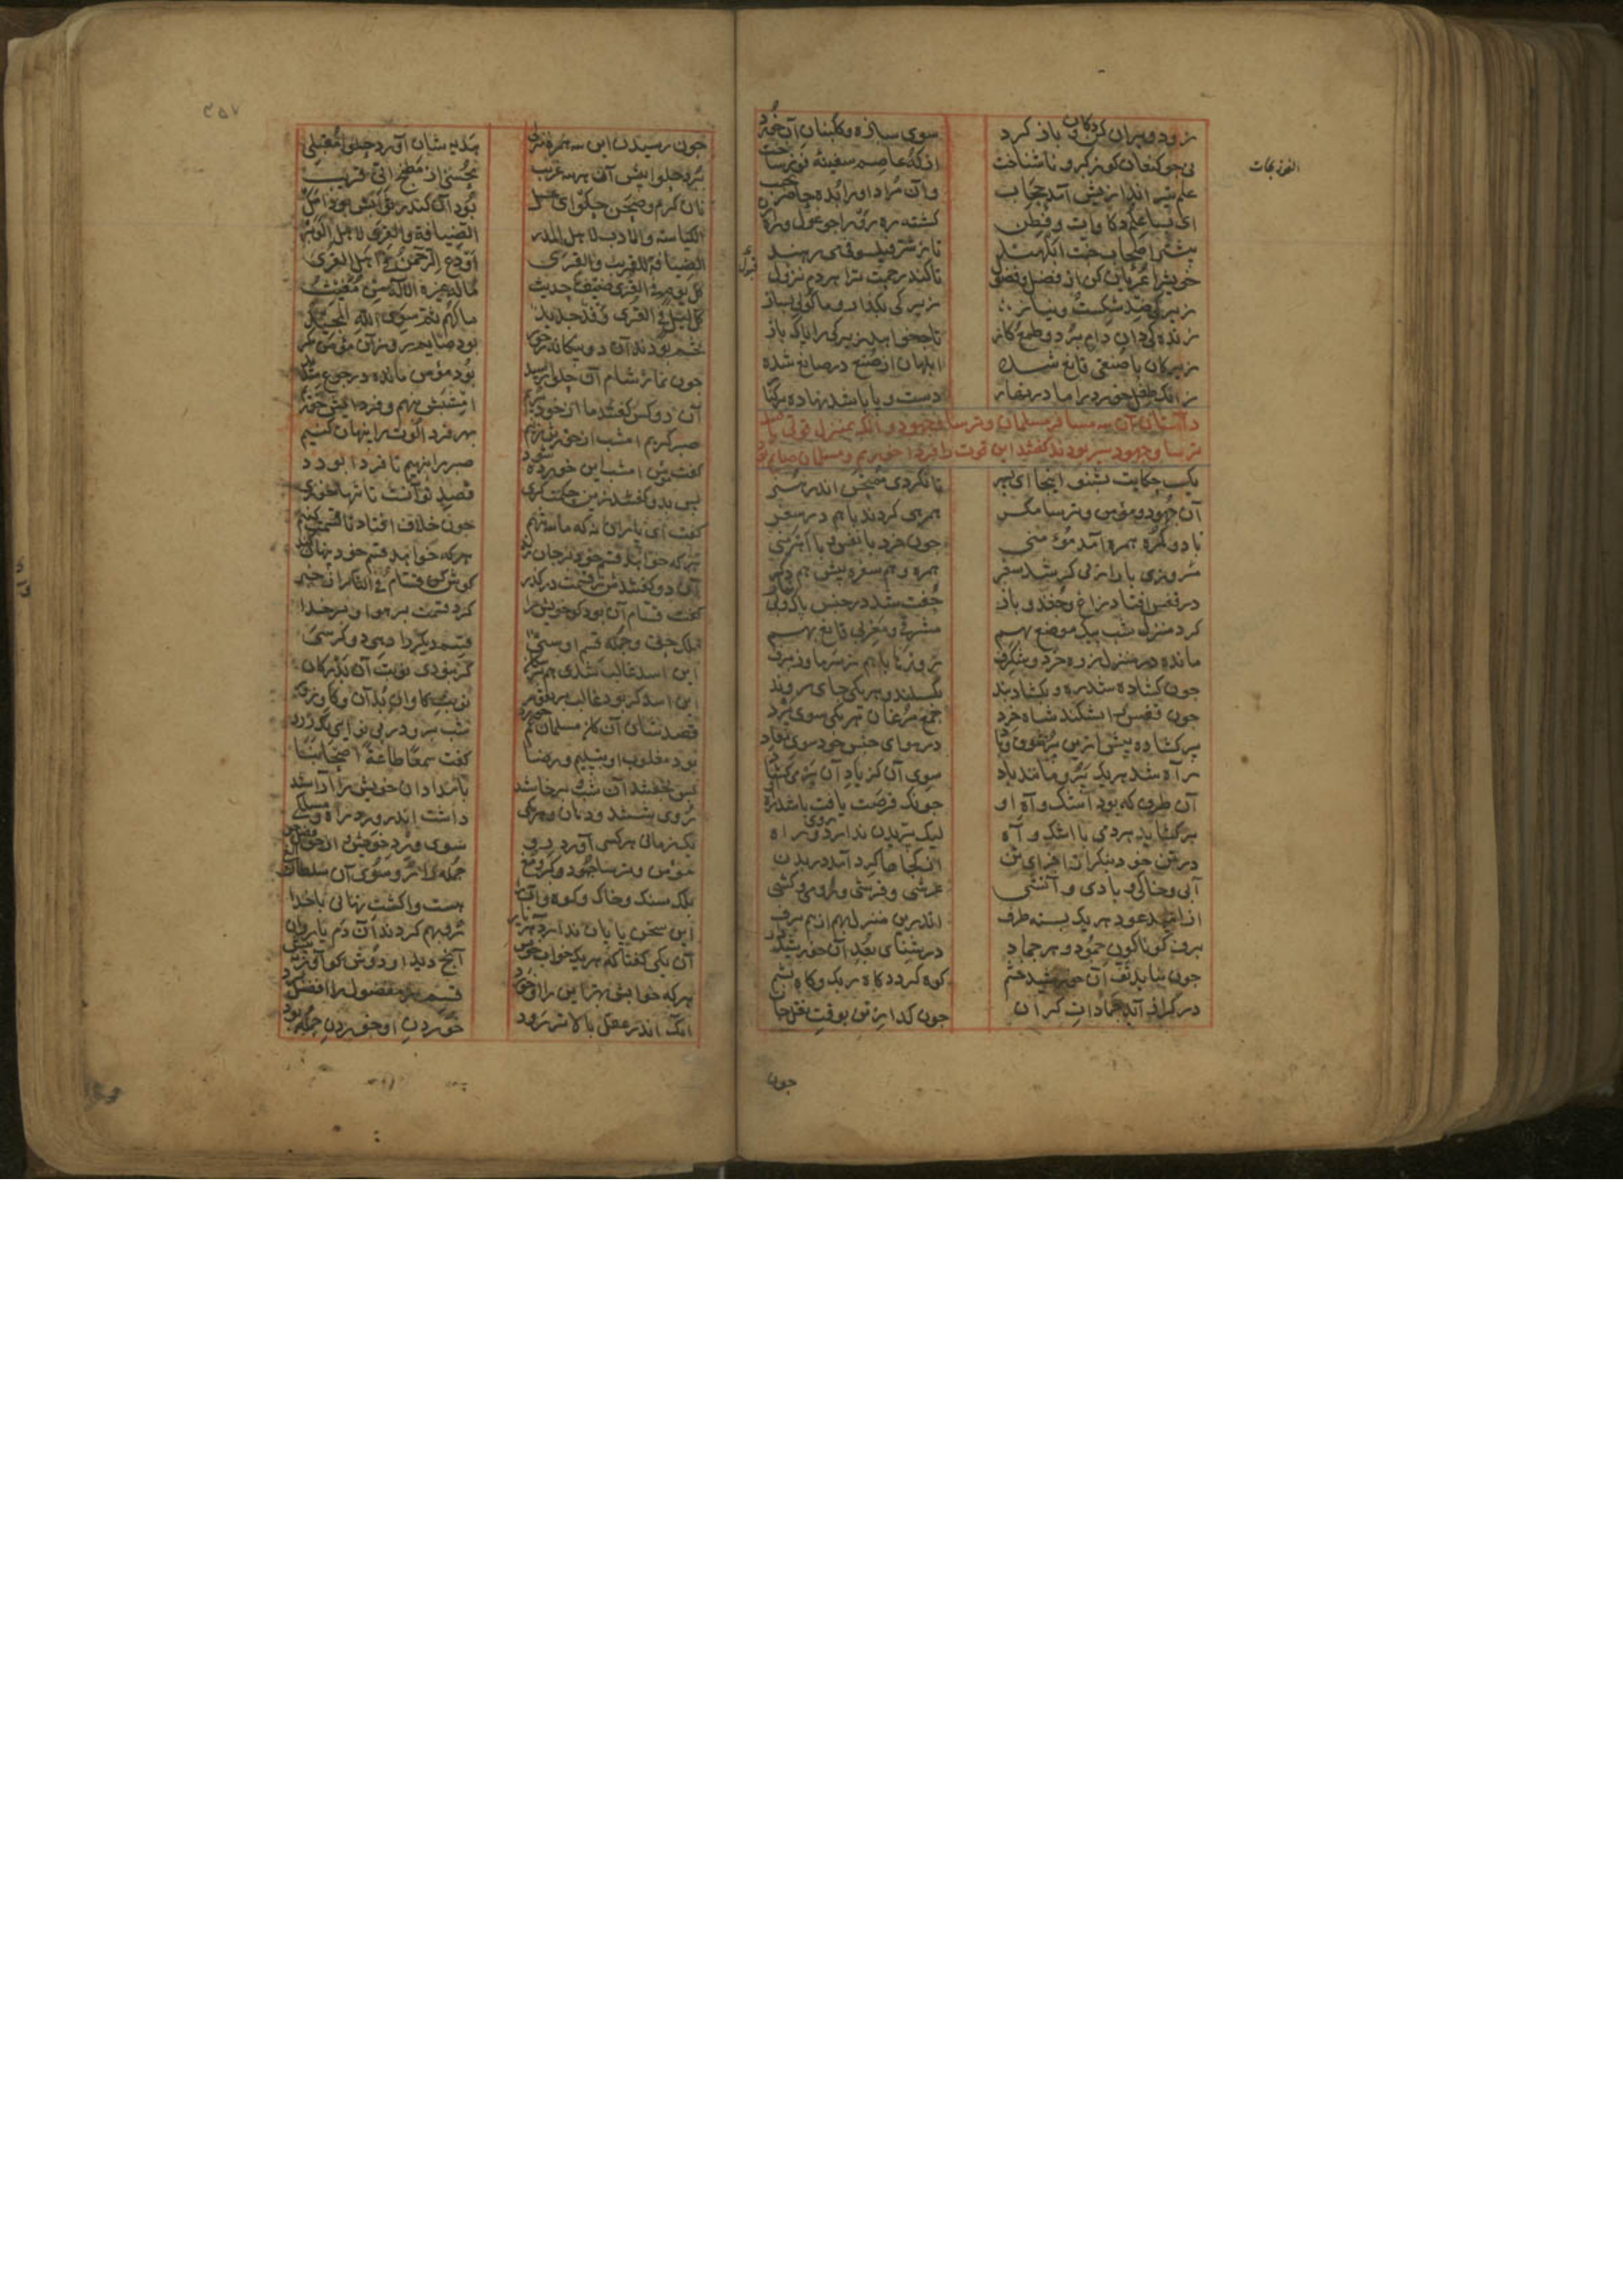 زود ویران کن دکان و باز کرد سوی سبزه و کلبنان آن خورد
نی جو کنعان کو ز کبر و ناشناخت از که عاصم سفینه فوز ساخت
علم تیر انداز یش آمد حجاب وان مراد او را بده حاضر بجیب
ای بسا علم و ذکاوات و فطن کشته ره رو را جو غول و راه زن
بیشتر اصحاب جنت ابلهند تا ز شر فیلسوفی می رهند
خویش را عریان کن از فضل و فضول تا کند رحمت ترا هر دم نزول
زیرکی ضد شکست و نیاز زیرکی بکذار و با کولی بساز
زیرکی دان دام برد و طمع و کاز تا جه خواهد زیرکی را باک باز
زیرکان با صنعتی قانع شده ابلهان از صنع در صانع شده
زانک طفل خرد را مادر نهار دست و با باشد نهاده بر کنار
داستان آن سه مسافر مسلمان و ترسا و جهود و آنک بمنزل قوتی یافتند
ترسا و جهود سیر بودند کفتند این قوت را فردا خوریم و مسلمان صایم بود
یک حکایت بشنو اینجا ای بسر تا نکردی ممتحن اندر هنر
آن جهود و مؤمن و ترسا مکر همرهی کردند با هم در سفر
با دو کمره همره آمد مؤمنی جون خرد با نفس و با آهرمنی
مروزی و رازی افتند در سفر همره و هم سفره بیش هم دکر
در قفس افتند زاغ و جغد و باز جفت شد در حبس باک و بی نماز
کرده منزل شب بیک موضع بهم مشرقی و مغربی قانع بهم
مانده در منزل ز ره خرد و شکرف روزها با هم ز سرما و ز برف
جون کشاده شد ره و بکشاد بند بکسلند و هر یکی جایی روند
جون قفس را بشکند شاه خرد جمع مرغان هر یکی سوی برد
بر کشاده بیش ازین بر شوق و یاد در هوای جنس خود سوی معاد
بر کشاید هر دمی با اشک و آه لیک بریدن ندارد روی و راه
راه شد هر یک برد مانند باد سوی آن کز یاد آن بر می کشاد
آن طرف که بود اشک و آه او جونک فرصت یافت باشد راه او
در تن خود بنکر این اجزای تن از کجا ها کرد آمد در بدن
آبی و خاکی و بادی و آتشی عرشی و فرشی و رومی و کشی
از امید عود هر یک بسته طرف اندرین منزل بهم از بیم برف
برف کوناکون جمود هر جماد در شتای بعد آن خورشید داد
جون بتابد تف آن خورشید خشم کوه کردد کاه ریک و کاه بشم
در کداز آید جمادات کران جون کداز تن بوقت نقل جان
جون
جون رسیدند این سه همره منزلی هدیه شان آورد حلوا مقبلی
برد حلوا بیش آن هر سه غریب محسنی از مطبخ انی قریب
نان کرم و صحن حلوای عسل برد آنک در ثوابش بود امل
الکیاسة و الادب لاهل المدر الضیافة و القری لاهل الوبر
الضیافة للغریب و القری اودع الرحمن فی اهل القری
کل یوم فی القری ضیف حدیث ما له غیر الاله من مغیث
کل لیل فی القری وفد جدید ما لهم ثم سوی الله المجید
تخمه بودند آن دو بیکانه ز خور بود صایم روز آن مؤمن مکر
جون نماز شام آن حلوا رسید بود مؤمن مانده در جوع شدید
آن دو کس کفتند ما از خور بریم امشبش بنهیم و فردایش خوریم
صبر کیریم امشب از خور تن زنیم بهر فردا لوت را بنهان کنیم
کفت مؤمن امشب این خورده شود صبر را بنهیم تا فردا بود
بس بدو کفتند زین حکمت کری قصد تو آنست تا تنها خوری
کفت ای یاران نه که ما سه تنیم جون خلاف افتاد تا قسمت کنیم
هر که خواهد قسم خود بر جان زند هر که خواهد قسم خود بنهان کند
آن دو کفتندش ز قسمت در کذر کوش کن قسام فی النار از خبر
کفت قسام آن بود کو خویش را کرد قسمت بر هوا و بر خدا
ملک حق و جمله قسم اوستی قسم دیکر را دهی دو کوستی
این اسد غالب شدی هم بر سکان کر نبودی نوبت آن بدرکان
قصدشان آن کان مسلمان غم خورد شب برو در بی نوایی بکذرد
بود مغلوب او بتسلیم و رضا کفت سمعا طاعة اصحابنا
بس بخفتند آن شب و برخاستند بامدادان خویش را آراستند
روی شستند و دهان و هر یکی داشت اندر ورد راه و مسلکی
یک زمانی هر کسی آورد رو سوی ورد خویش از حق فضل جو
مؤمن و ترسا جهود و کبر و مغ جمله را رو سوی آن سلطان الغ
بلک سنک و خاک و کوه و آب را هست واکشت نهانی با خدا
این سخن بایان ندارد هر سه یار رو بهم کردند آن دم یاروار
آن یکی کفتا که هر یک خواب خویش آنج دید او دوش کو آور ببیش
هر که خوابش بهتر این را او خورد قسم هر مفضول را افضل برد
آنک اندر عقل بالاتر رود خوردن او خوردن جمله بود